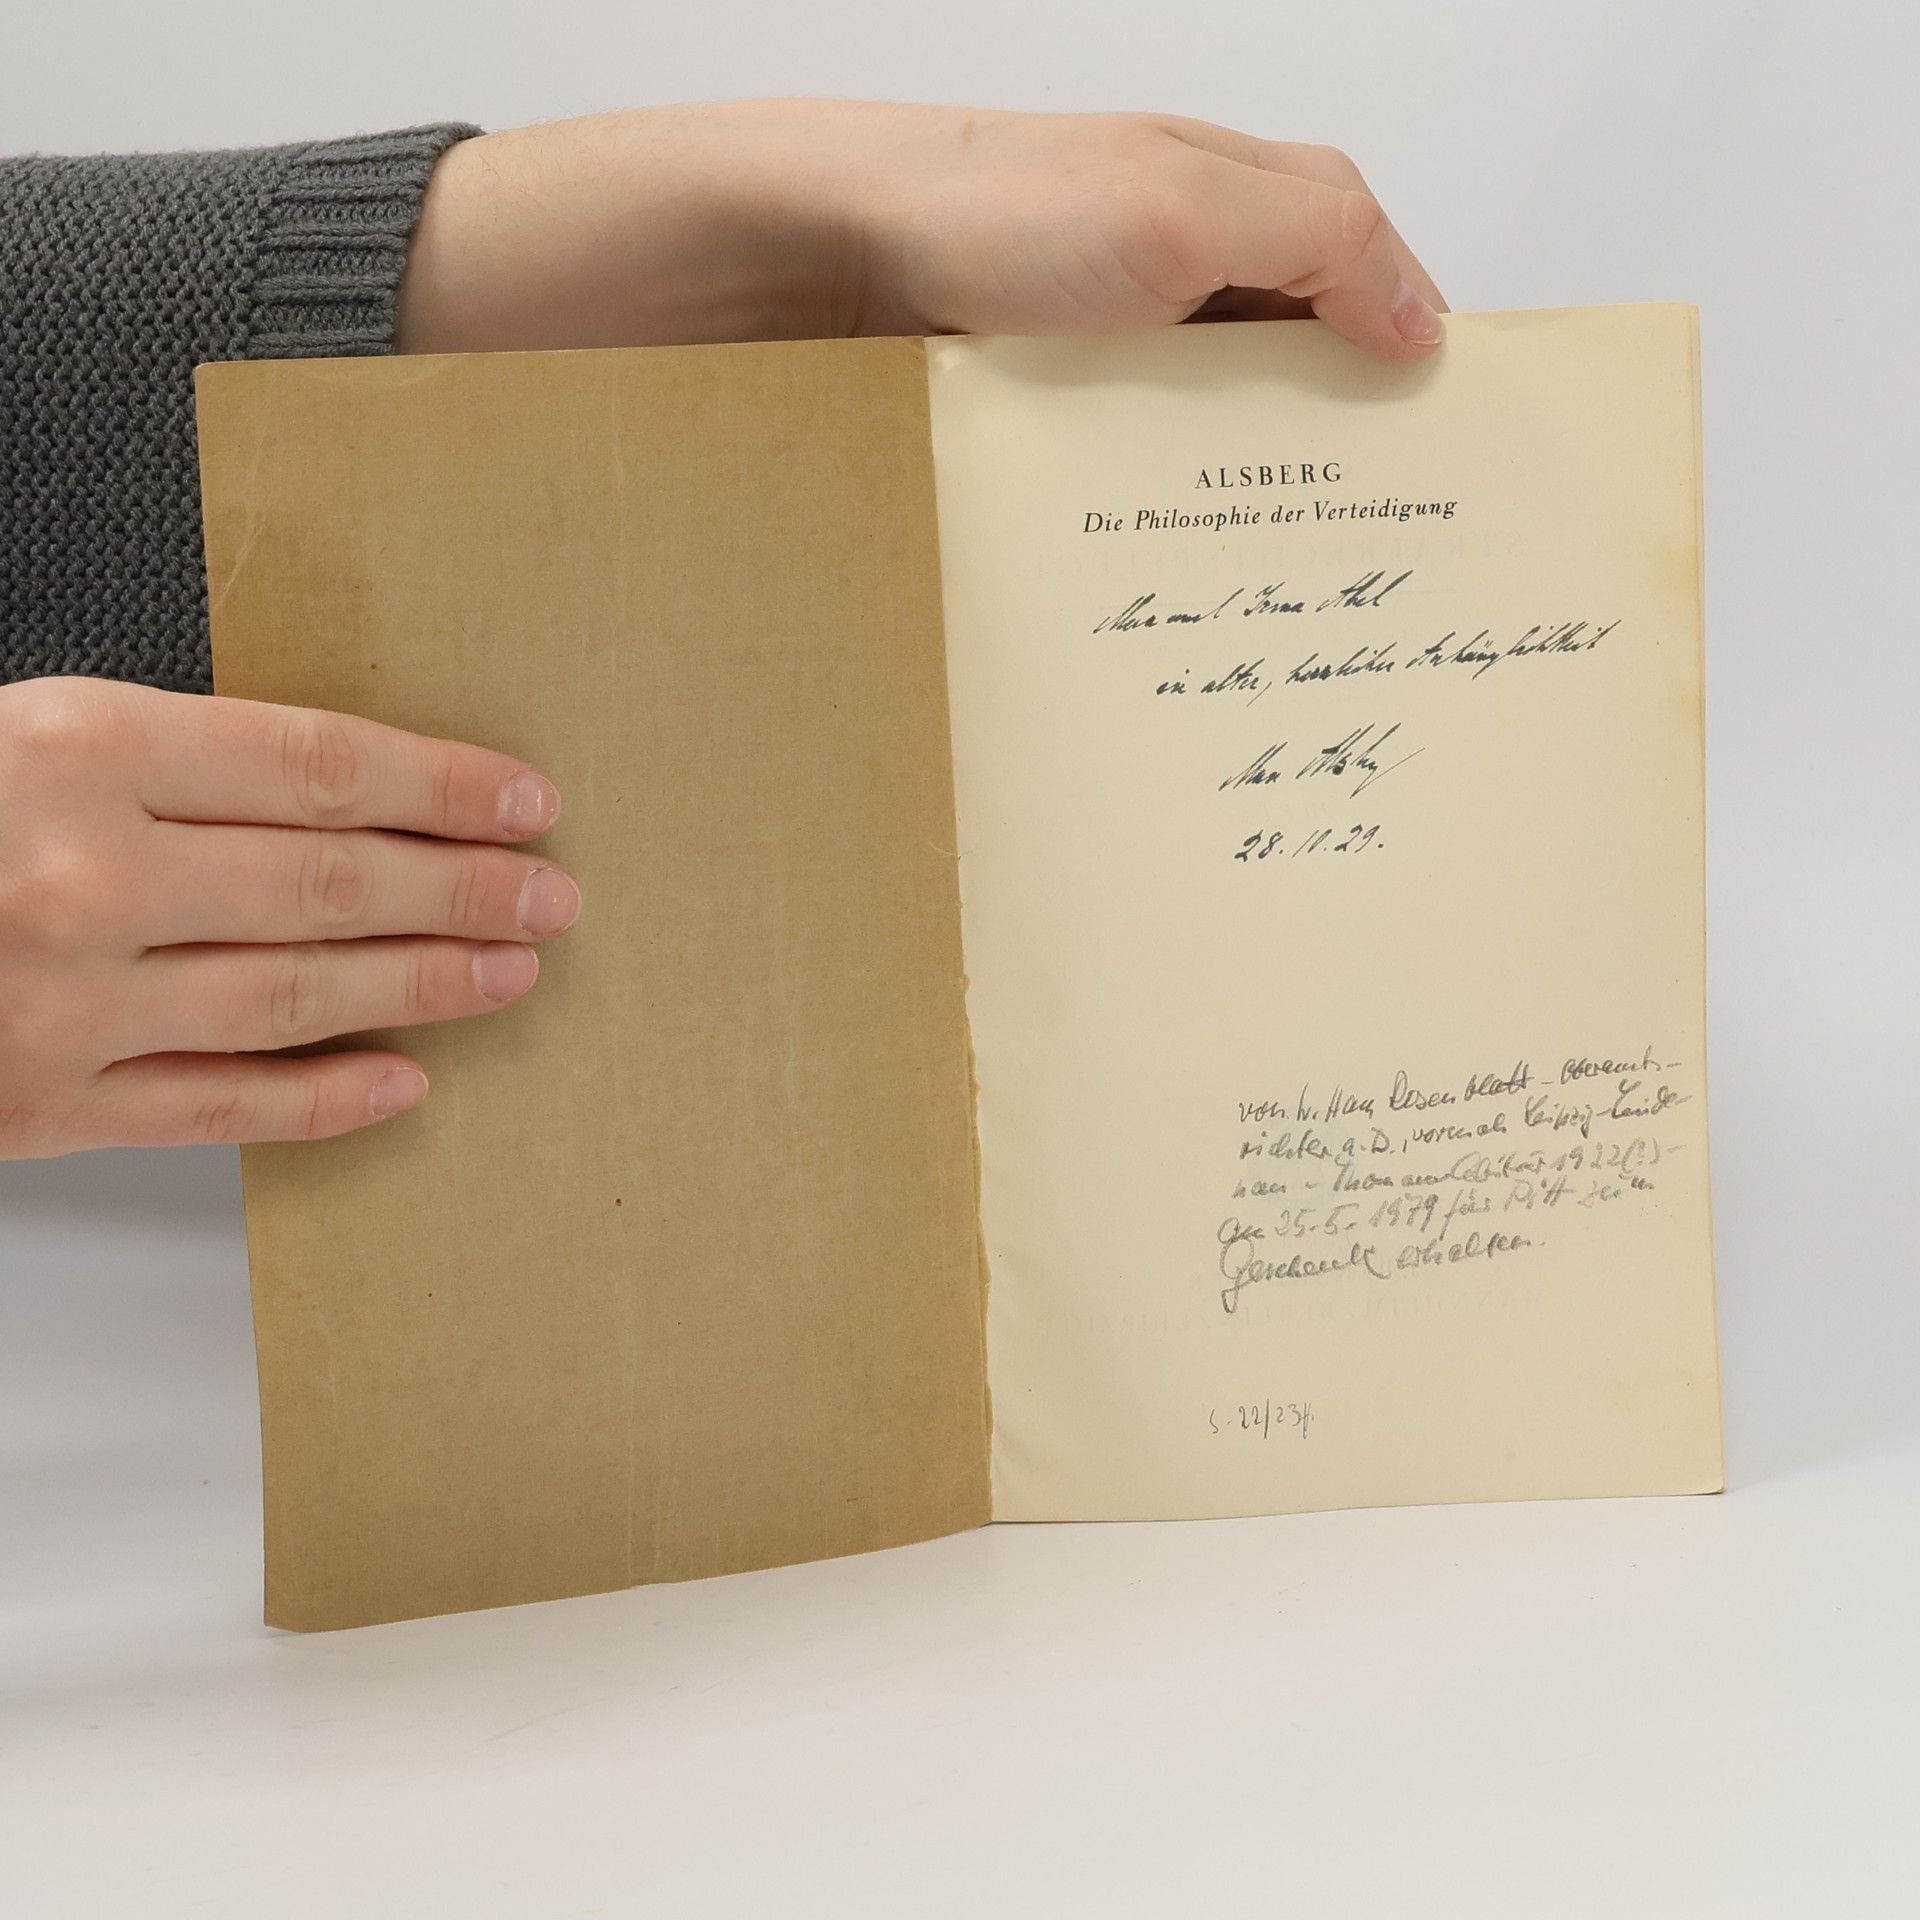 ALSBERG
Die Philosophie der Verteidigung
Max und Irma Abel
in alter, herzlicher Anhänglichkeit
Max Alsberg
28. 10. 29.
von Dr. Hans Rosenblatt - Oberamts-
richter a. D., vormals Leipzig-Linde-
nau - Thomanerabitur 1922(?) -
am 25.5.1979 für Pitt zum
Geschenk erhalten.
S. 22/23ff.